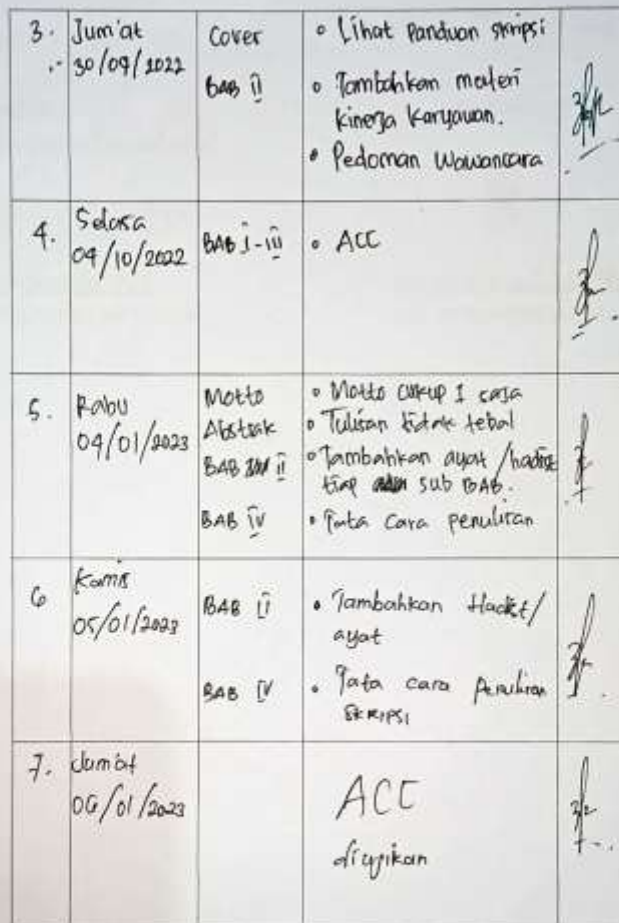 3. Jum'at
30/09/2022
Cover
BAB II
• Lihat panduan skripsi
• Tambahkan materi
kinerja karyawan.
• Pedoman Wawancara
4. Selasa
04/10/2022
BAB I-III
• ACC
5. Rabu
04/01/2023
Motto
Abstrak
BAB II
BAB IV
• Motto cukup 1 saja
• Tulisan tidak tebal
• Tambahkan ayat/hadist
tiap sub BAB.
• Tata cara penulisan
6 Kamis
05/01/2023
BAB II
BAB IV
• Tambahkan Hadist/
ayat
• Tata cara Penulisan
SKRIPSI
7. Jum'at
06/01/2023
ACC
diujikan